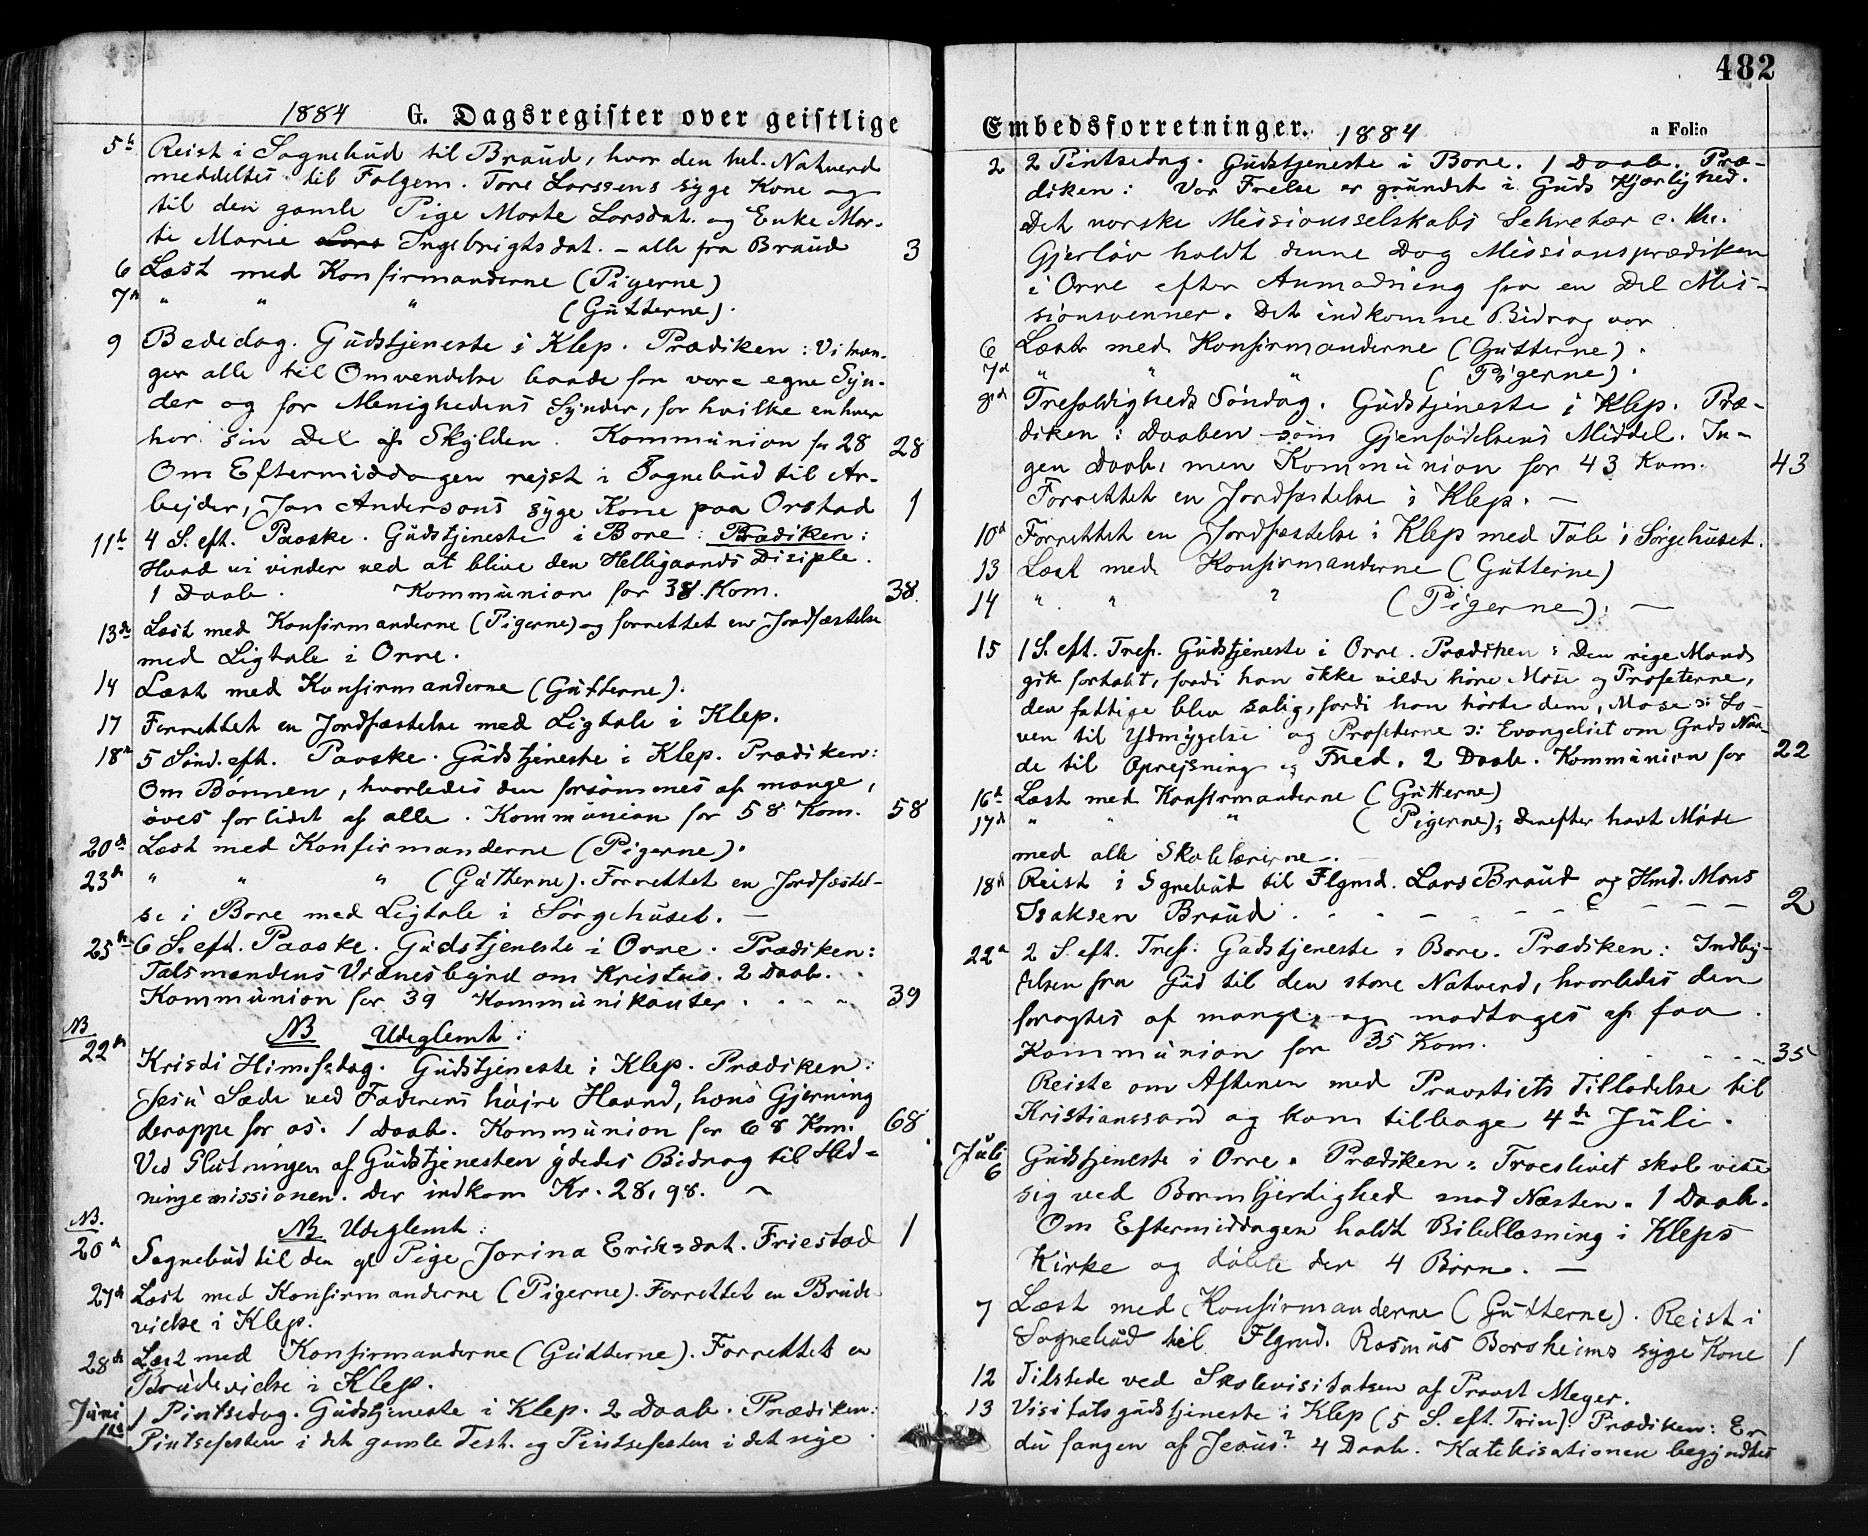 482
1884 G. Dagsregister over geistlige
5t Reist i Sognebud til Braud, hvor den hel. Natverd
meddeltes til Folgem. Tore Larssens syge Kone og
til den gamle Pige Marte Larsdat. og Enke Mar-
te Marie Lars Ingebrigtsdat. - alle fra Braud 3
6 Læst med Konfirmanderne (Pigerne)
7de " " " (Gutterne).
9 Bededag. Gudstjeneste i Klep. Prædiken: Vi træn-
ger alle til Omvendelse baade for vore egne Syn-
der og for Menighedens Synder, for hvilke enhver
har sin Del af Skylden. Kommunion for 28 28
Om Eftermiddagen rejst i Sognebud til Ar-
bejder, Jon Andersons syge Kone paa Orstad 1
11te 4 S. eft. Paaske. Gudstjeneste i Bore: Prædiken:
Hvad vi vinder ved at blive den Helligaands Disiple.
1 Daab. Kommunion for 38 Kom. 38.
13de Læst med Konfirmanderne (Pigerne) og forrettet en Jordfæstelse
med Ligtale i Orre.
14 Læst med Konfirmanderne (Gutterne).
17 Forrettet en Jordfæstelse med Ligtale i Klep.
18de 5 Sønd. eft. Paaske. Gudstjeneste i Klep. Prædiken:
Om Bønnen, hvorledes den forsømmes af mange,
øves for lidet af alle. Kommunion for 58 Kom. 58
20de Læst med Konfirmanderne (Pigerne).
23de " " " (Gutterne). Forrettet en Jordfæstel-
se i Bore med Ligtale i Sørgehuset. —
25de 6 S. eft. Paaske. Gudstjeneste i Orre. Prædiken:
Talsmandens Vidnesbyrd om Kristus. 2 Daab.
Kommunion for 39 Kommunikanter. 39
NB NB Udeglemt:
22de Kristi Himf.dag. Gudstjeneste i Klep. Prædiken:
Jesu Sæde ved Faderens højre Haand, hans Gjerning
deroppe for os. 1 Daab. Kommunion for 68 Kom. 68.
Ved Slutningen af Gudstjenesten ydedes Bidrag til Hed-
ningemissionen. Der indkom Kr. 28,98.
NB. NB Udeglemt:
20de Sognebud til den gl Pige Jorina Eriksdat. Friestad 1
27de Læst med Konfirmanderne (Pigerne). Forrettet en Brude-
vielse i Klep.
28de Læst med Konfirmanderne (Gutterne). Forrettet en
Brudevielse i Klep.
Juni 1te 1 Pintsedag. Gudstjeneste i Klep. 2 Daab. Prædiken:
Pintsefesten i det gamle Test. og Pintsefesten i det nye
Embedsforretninger. 1884 a Folio
2 2 Pintsedag. Gudstjeneste i Bore. 1 Daab. Præ-
diken: Vor Frelse er grundet i Guds Kjærlighed.
Det norske Missionsselskabs Sekretær c. th.
Gjerløv holdt denne Dag Missionsprædiken
i Orre efter Anmodning fra en Del Mis-
sionsvenner. Det indkomne Bidrag var
6 Læst med Konfirmanderne (Gutterne).
7de " " " (Pigerne).
8de Trefoldigheds Søndag. Gudstjeneste i Klep. Præ-
diken: Daaben som Gjenfødelsens Middel. In-
gen Daab, men Kommunion for 43 Kom. 43
Forrettet en Jordfæstelse i Klep. —
10de Forrettet en Jordfæstelse i Klep med Tale i Sørgehuset.
13 Læst med Konfirmanderne (Gutterne)
14 " " " (Pigerne). —
15 1 S. eft. Tref. Gudstjeneste i Orre. Prædiken: Den rige Mand
gik fortabt, fordi han ikke vilde høre Mose og Profeterne,
den fattige blev salig, fordi han hørte dem, Mose ɔ: Lo-
ven til Ydmygelse og Profeterne ɔ: Evangeliet om Guds Naa-
de til Oprejsning og Fred. 2 Daab. Kommunion for 22
16de Læst med Konfirmanderne (Gutterne)
17de " " " (Pigerne); derefter havt Møde
med alle Skolelærerne.
18de Reist i Sognebud til Flgmd. Lars Braud og Hmd. Mons
Isaksen Braud. 2
22de 2 S. eft. Tref. Gudstjeneste i Bore. Prædiken: Indby-
delsen fra Gud til den store Natverd, hvorledes den
foragtes af mange og modtages af faa.
Kommunion for 35 Kom. 35
Reiste om Aftenen med Provstiets Tilladelse til
Kristianssand og kom tilbage 4de Juli.
Juli 6 Gudstjeneste i Orre. Prædiken: Troeslivet skal vise
sig ved Barmhjertighed mod Næsten. 1 Daab.
Om Eftermiddagen holdt Bibellæsning i Kleps
Kirke og døbte der 4 Børn. —
7 Læst med Konfirmanderne (Gutterne). Reist i
Sognebud til Flgmd. Rasmus Borsheims syge Kone 1
12 Tilstede ved Skolevisitatsen af Provst Meyer.
13 Visitatsgudstjeneste i Klep (5 S. eft. Trin). Prædiken: Er
du fangen af Jesus? 4 Daab. Katekisationen begyndtes